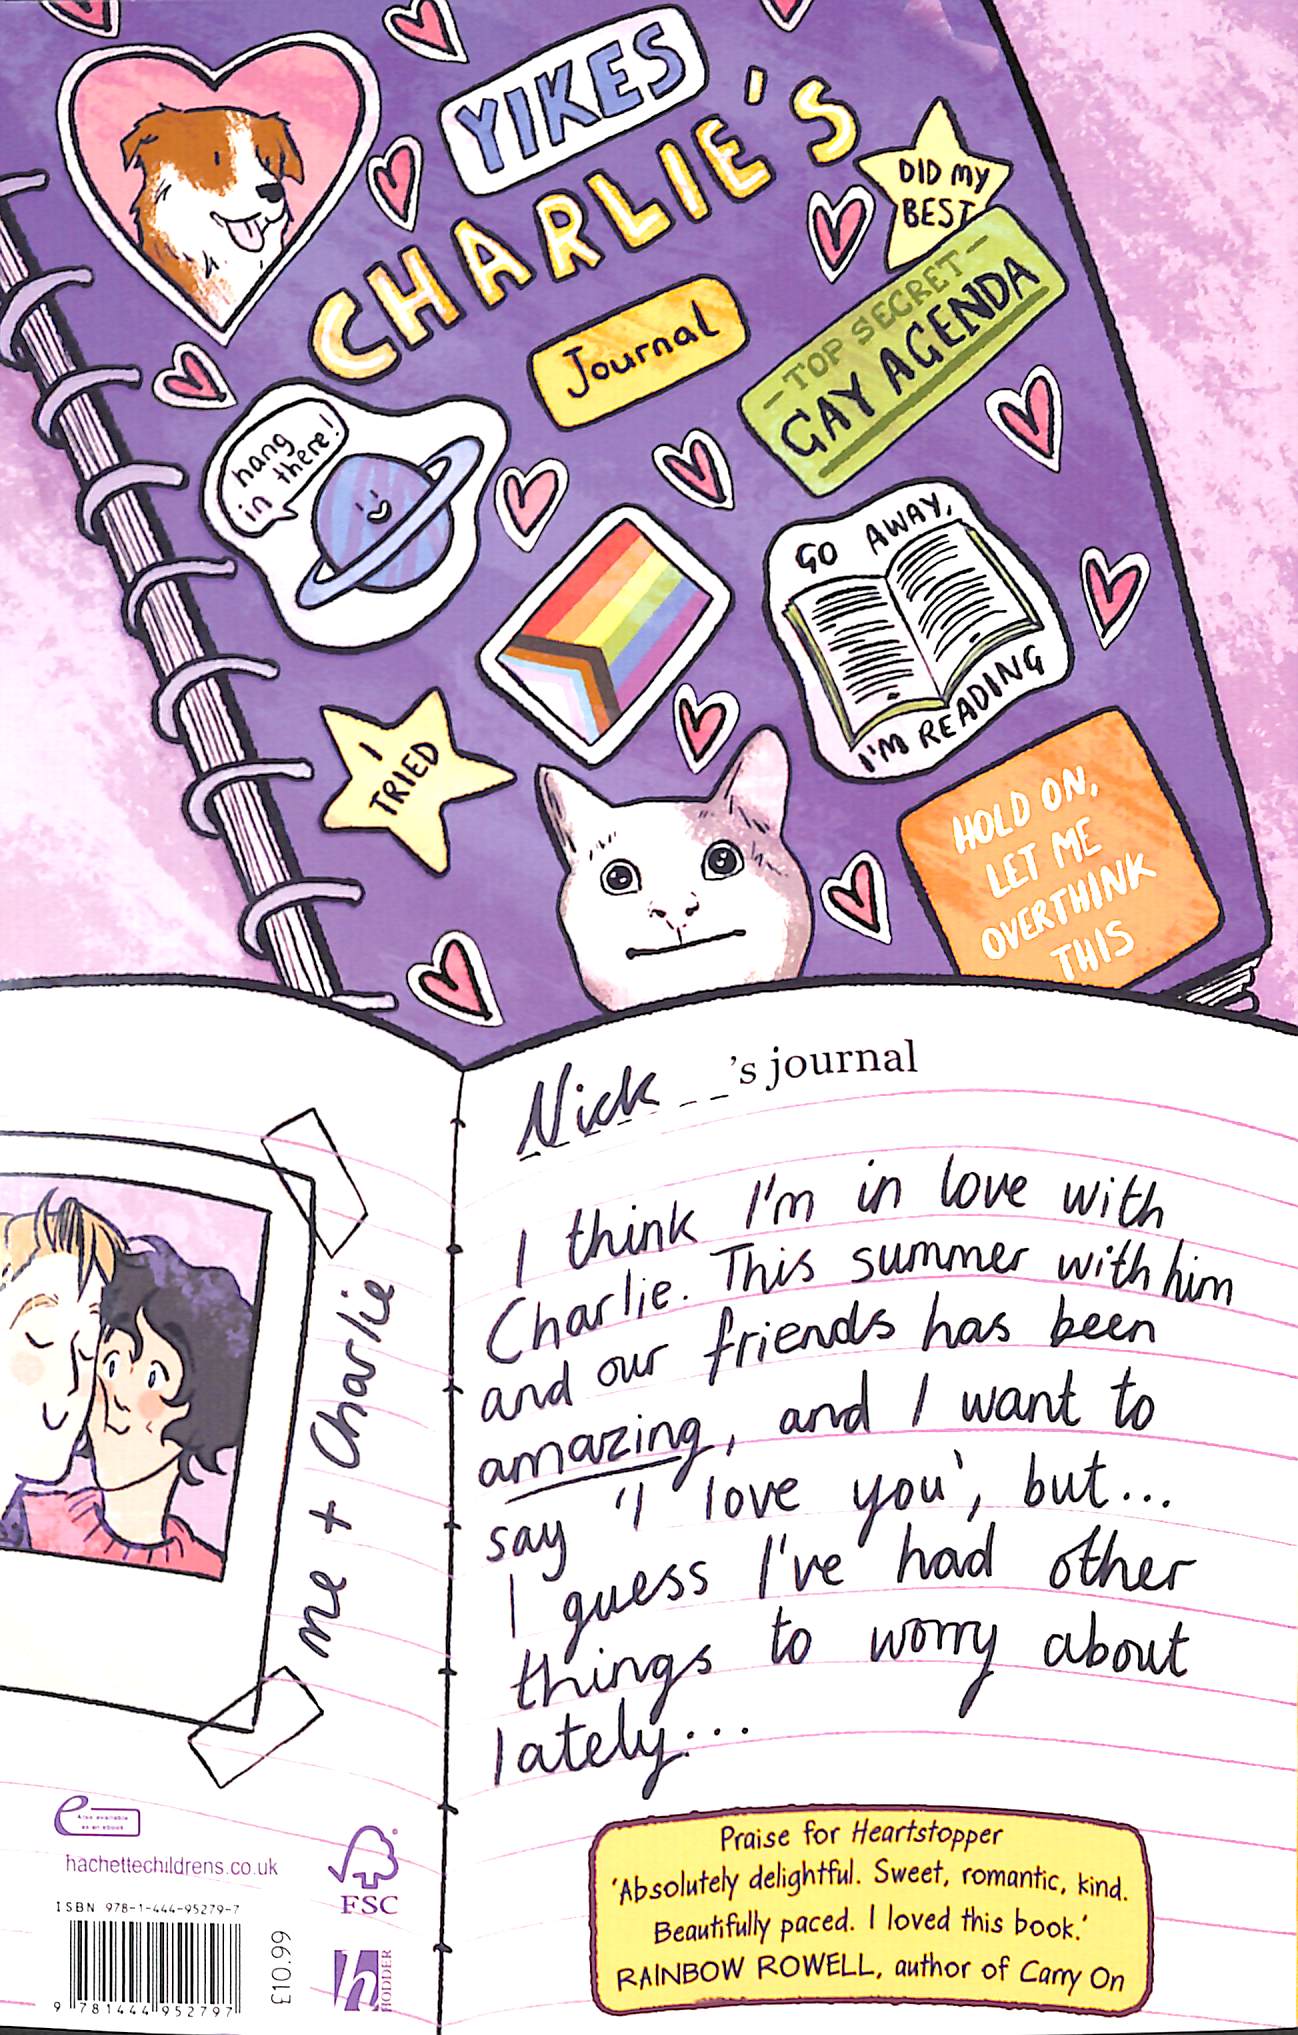 YIKES
CHARLIE'S
Journal
DID MY
BEST
- TOP SECRET -
GAY AGENDA
hang
in there!
GO AWAY,
I'M READING
I
TRIED
HOLD ON,
LET ME
OVERTHINK
THIS
Nick's journal
I think I'm in love with
Charlie. This summer with him
and our friends has been
amazing, and I want to
say 'I love you', but...
I guess I've had other
things to worry about
lately...
me + Charlie
Also available
as an ebook
hachettechildrens.co.uk
FSC
ISBN 978-1-444-95279-7
9 781444 952797
£10.99
h
HODDER
Praise for Heartstopper
'Absolutely delightful. Sweet, romantic, kind.
Beautifully paced. I loved this book.'
RAINBOW ROWELL, author of Carry On